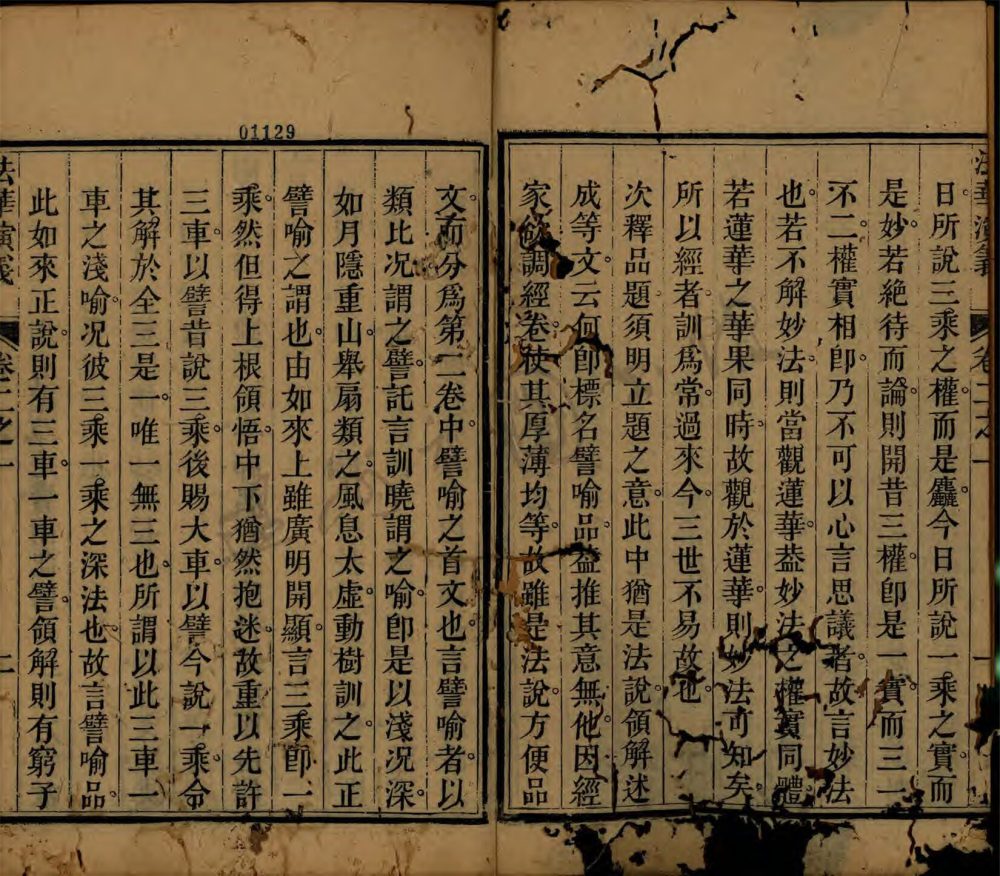 法華演義 卷二之一 一
日所說三乘之權而是麤今日所說一乘之實而
是妙若絕待而論則開昔三權卽是一實而三一
不二權實相卽乃不可以心言思議者故言妙法
也若不解妙法則當觀蓮華葢妙法之權實同體
若蓮華之華果同時故觀於蓮華則妙法可知矣
所以經者訓爲常過來今三世不易故也
次釋品題須明立題之意此中猶是法說領解述
成等文云何卽標名譬喻品葢推其意無他因經
家欲調經卷使其厚薄均等故雖是法說方便品
01129
文而分爲第二卷中譬喻之首文也言譬喻者以
類比况謂之譬託言訓曉謂之喻卽是以淺况深
如月隱重山舉扇類之風息太虛動樹訓之此正
譬喻之謂也由如來上雖廣明開顯言三乘卽一
乘然但得上根領悟中下猶然抱迷故重以先許
三車以譬昔說三乘後賜大車以譬今說一乘令
其解於全三是一唯一無三也所謂以此三車一
車之淺喻况彼三乘一乘之深法也故言譬喻品
此如來正說則有三車一車之譬領解則有窮子
法華演義 卷二之一 二